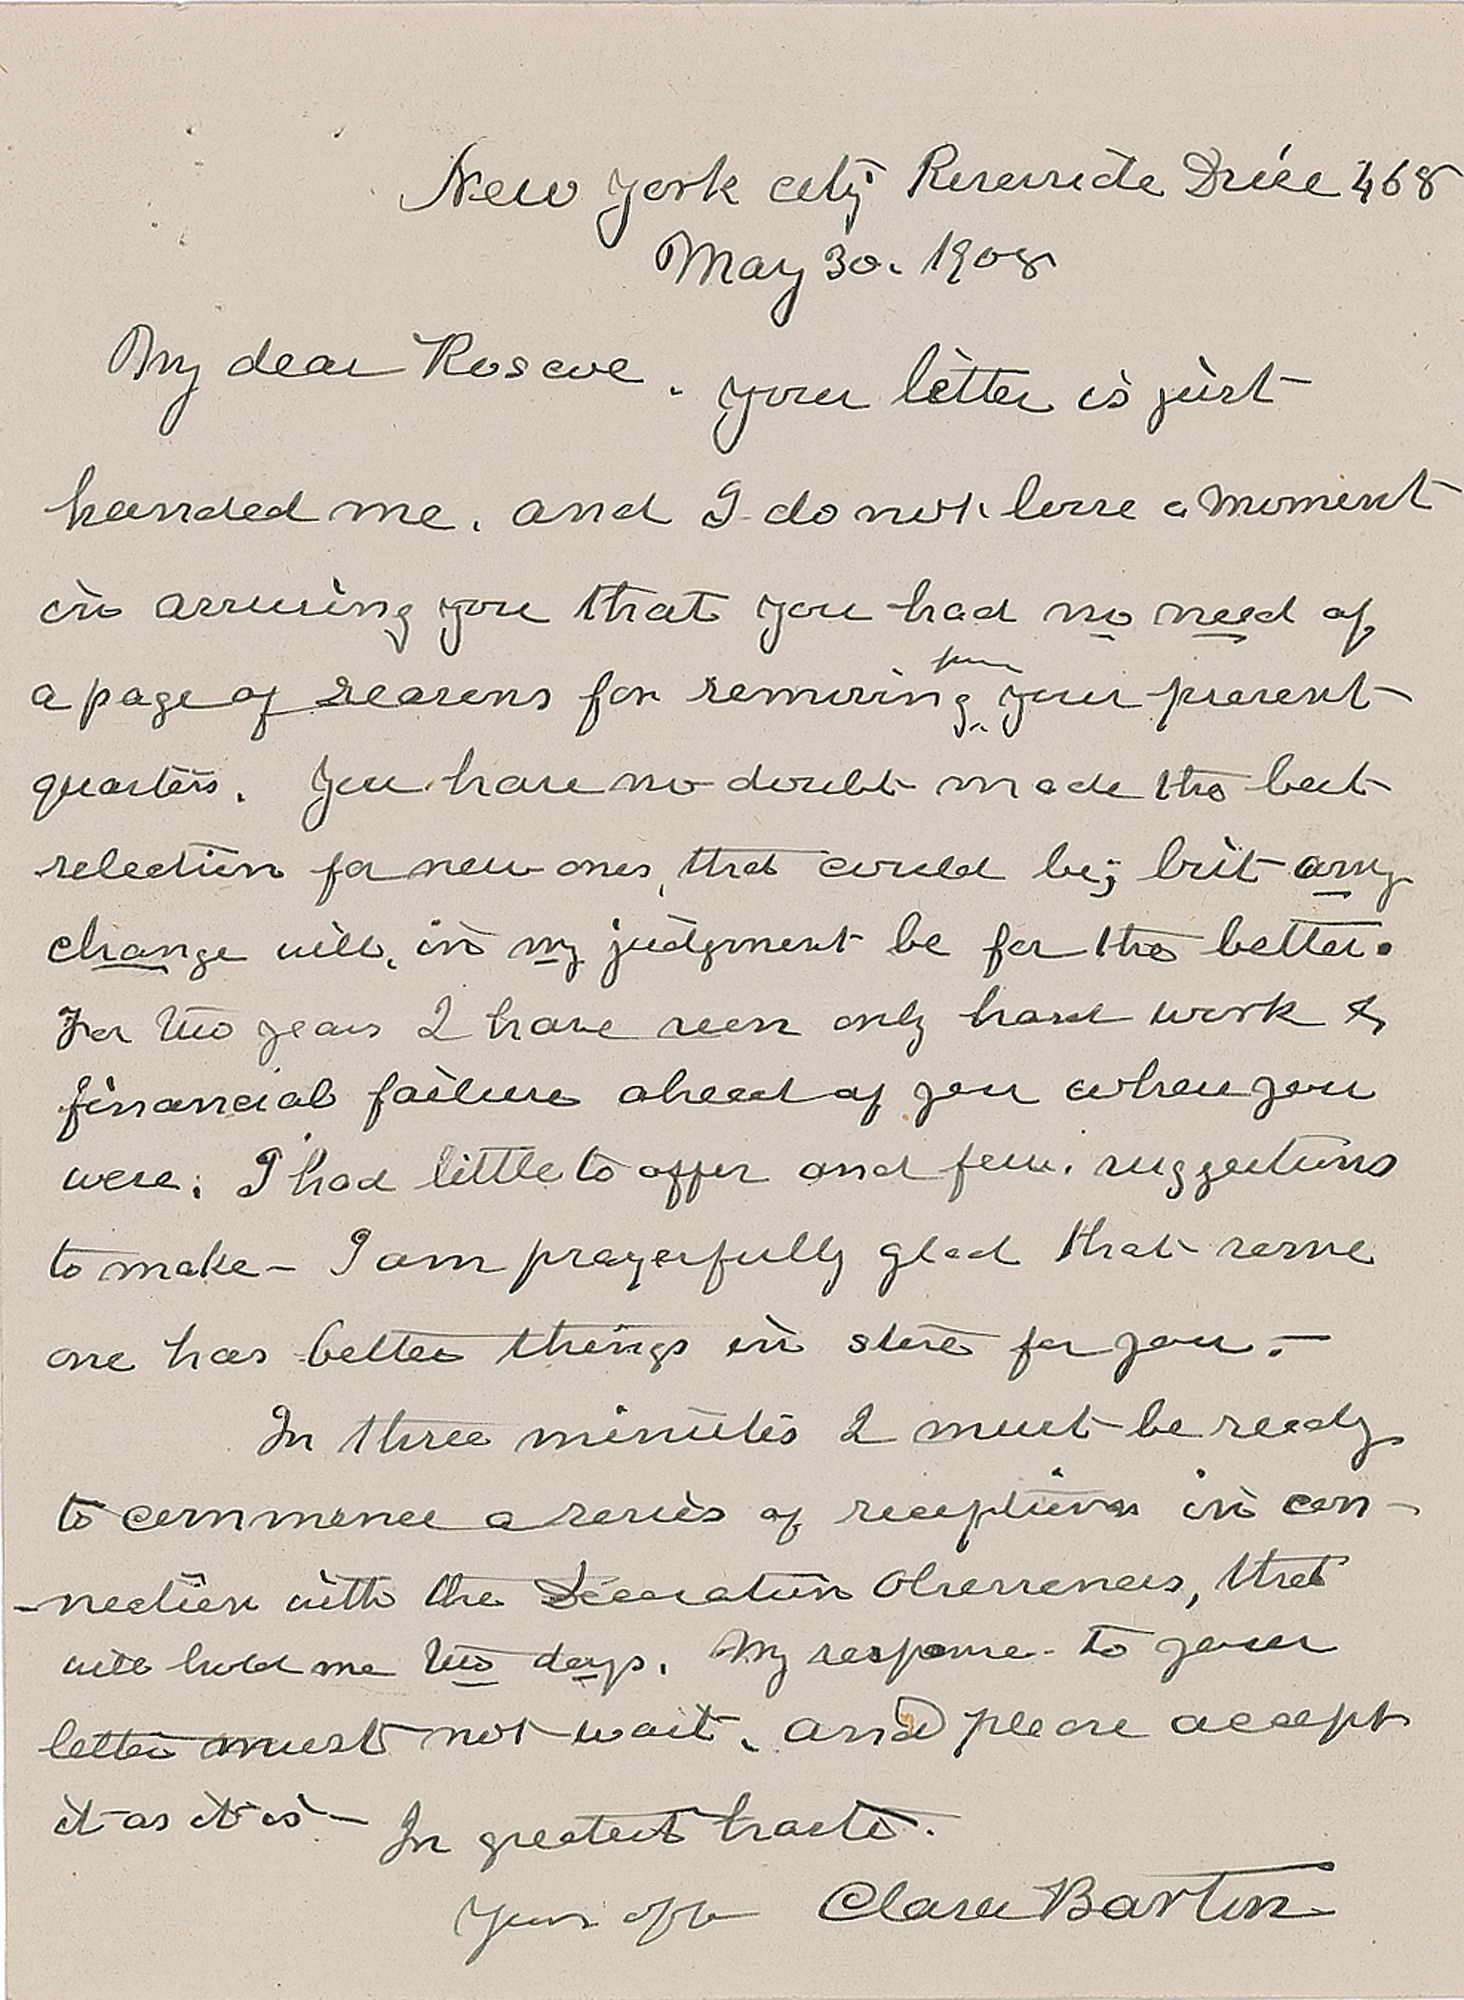 New York city Riverside Drive 468
May 30. 1908
My dear Roscoe. your letter is just
handed me. and I do not lose a moment
in assuring you that you had no need of
a page of reasons for removing from your present
quarters. You have no doubt made the best
selection for new ones, that could be; but any
change will, in my judgment be for the better.
For two years I have seen only hard work &
financial failure ahead of you where you
were. I had little to offer and few suggestions
to make - I am prayerfully glad that some
one has better things in store for you. -
In three minutes I must be ready
to commence a series of receptions in con-
-nection with the Decoration Observences, that
will hold me two days. My response to your
letter must not wait. and please accept
it as it is - In greatest haste.
Yours aff Clara Barton